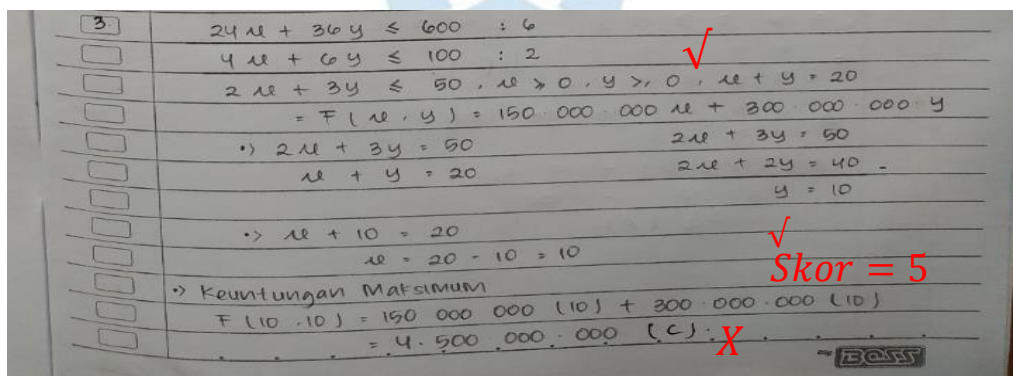 3. 24x + 36y ≤ 600 : 6
4x + 6y ≤ 100 : 2 √
2x + 3y ≤ 50, x ≥ 0, y ≥, 0, x + y = 20
= F(x, y) = 150 000 000 x + 300 000 000 y
•) 2x + 3y = 50 2x + 3y = 50
x + y = 20 2x + 2y = 40 -
y = 10
•> x + 10 = 20 √
x = 20 - 10 = 10 Skor = 5
•> Keuntungan Maksimum
F(10.10) = 150 000 000 (10) + 300.000.000 (10)
= 4.500.000.000 (C). X
BOSS